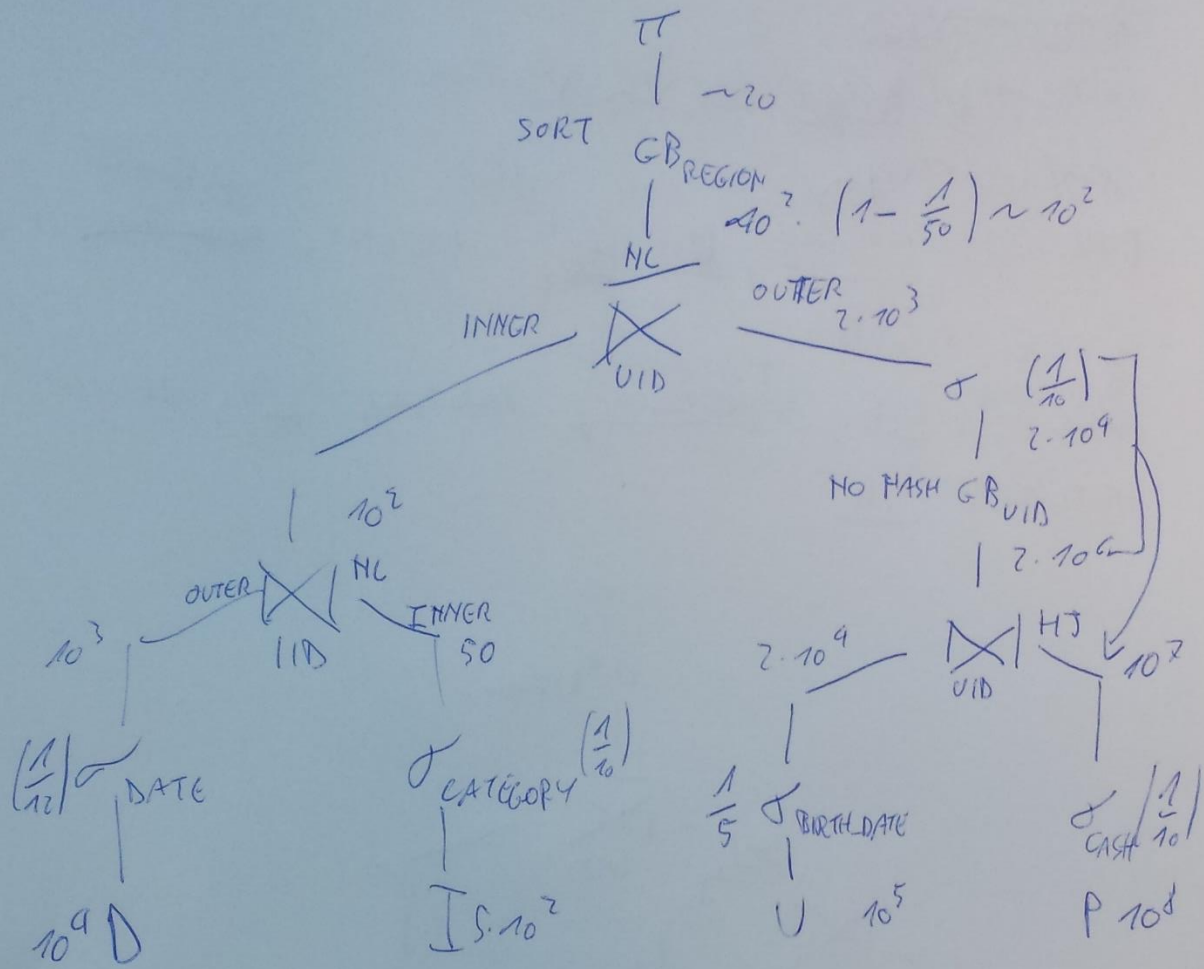 π
~20
SORT
GB REGION
~10² · (1 - 1/50) ~ 10²
NL
OUTER
2·10³
INNER
⋈
UID
σ (1/10)
2·10⁴
NO HASH GB UID
2·10⁶
10²
OUTER
⋈
NL
INNER
50
10³
IID
2·10⁴
⋈
HJ
UID
10⁷
(1/12) σ DATE
σ CATEGORY (1/10)
1/5 σ BIRTH_DATE
σ CASH (1/10)
10⁴ D
I 5·10²
U 10⁵
P 10⁸